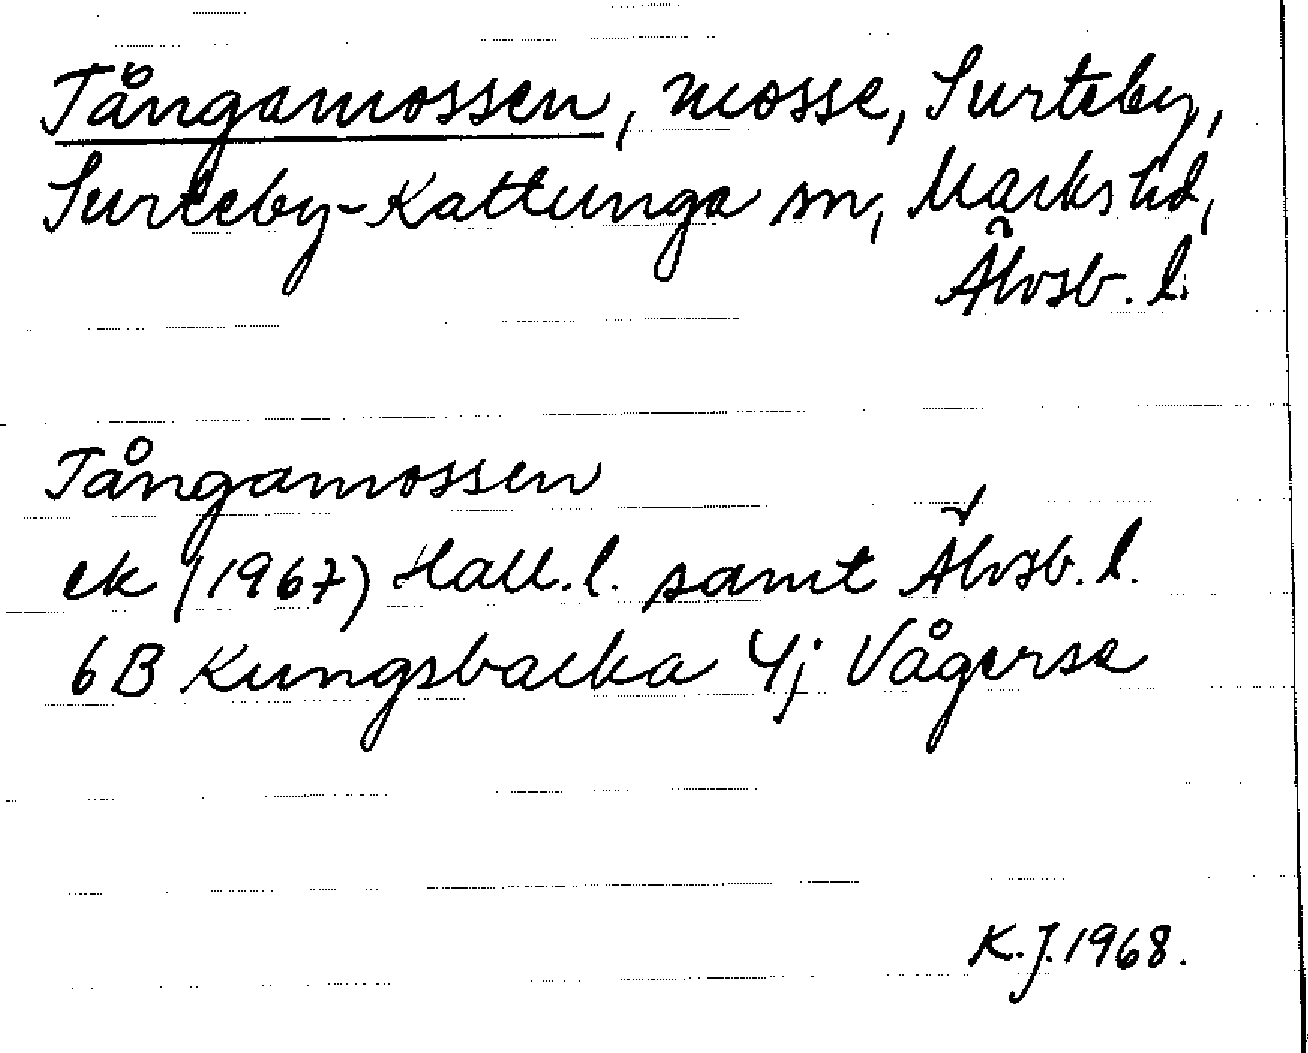 Tångamossen, mosse, Surteby,
Surteby-Kattunga sn, Marks hd,
Älvsb. l.
Tångamossen
ek (1967) Hall. l. samt Älvsb. l.
6B Kungsbacka 4j Vågerse
K.J. 1968.